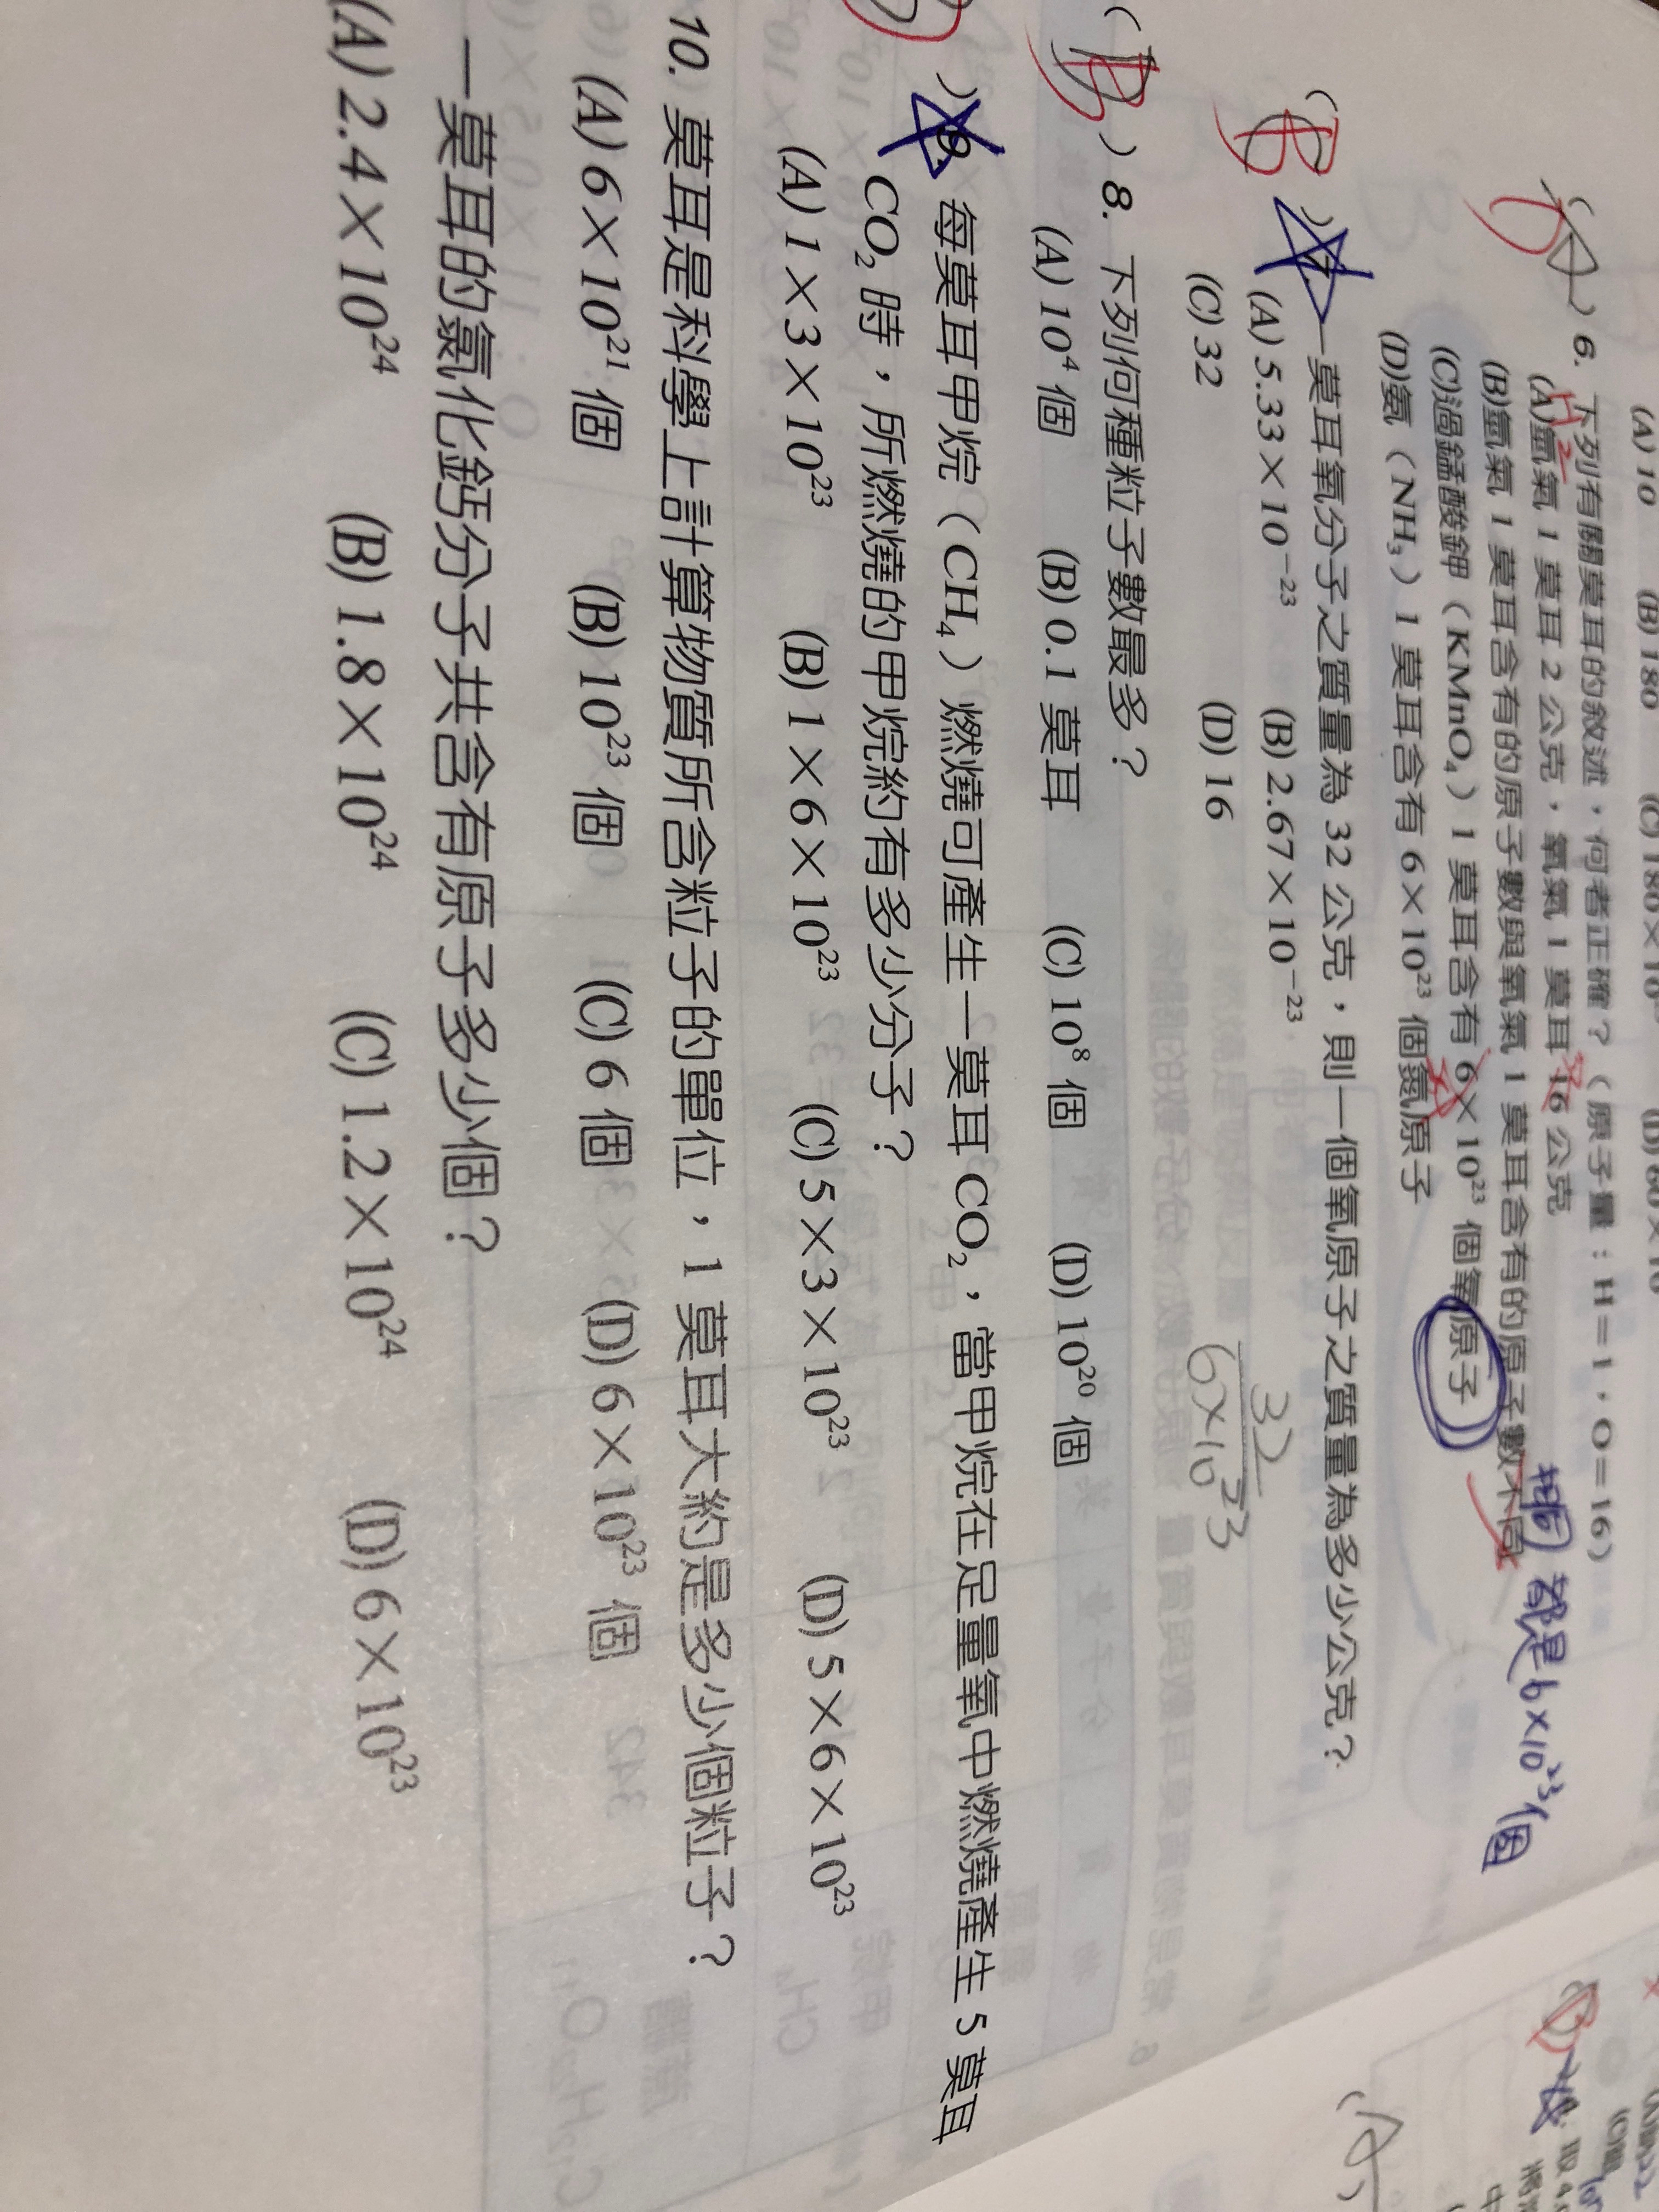 (A) 10 (B) 180 (C) 180×10 (D) 60×10
( D ) 6. 下列有關莫耳的敘述，何者正確？（原子量：H＝1，O＝16）
(A)氫氣 1 莫耳 2 公克，氧氣 1 莫耳 16 公克
H₂
(B)氫氣 1 莫耳含有的原子數與氧氣 1 莫耳含有的原子數不同
都是 6×10²³ 個
(C)過錳酸鉀（KMnO₄）1 莫耳含有 6×10²³ 個氧原子
(D)氨（NH₃）1 莫耳含有 6×10²³ 個氮原子
( B ) 一莫耳氧分子之質量為 32 公克，則一個氧原子之質量為多少公克？
(A) 5.33×10⁻²³ (B) 2.67×10⁻²³
(C) 32 (D) 16
32
6×10²³
( B ) 8. 下列何種粒子數最多？
(A) 10⁴ 個 (B) 0.1 莫耳 (C) 10⁸ 個 (D) 10²⁰ 個
) 9. 每莫耳甲烷（CH₄）燃燒可產生一莫耳 CO₂，當甲烷在足量氧中燃燒產生 5 莫耳
CO₂ 時，所燃燒的甲烷約有多少分子？
(A) 1×3×10²³ (B) 1×6×10²³ (C) 5×3×10²³ (D) 5×6×10²³
10. 莫耳是科學上計算物質所含粒子的單位，1 莫耳大約是多少個粒子？
(A) 6×10²¹ 個 (B) 10²³ 個 (C) 6 個 (D) 6×10²³ 個
一莫耳的氯化鈣分子共含有原子多少個？
(A) 2.4×10²⁴ (B) 1.8×10²⁴ (C) 1.2×10²⁴ (D) 6×10²³